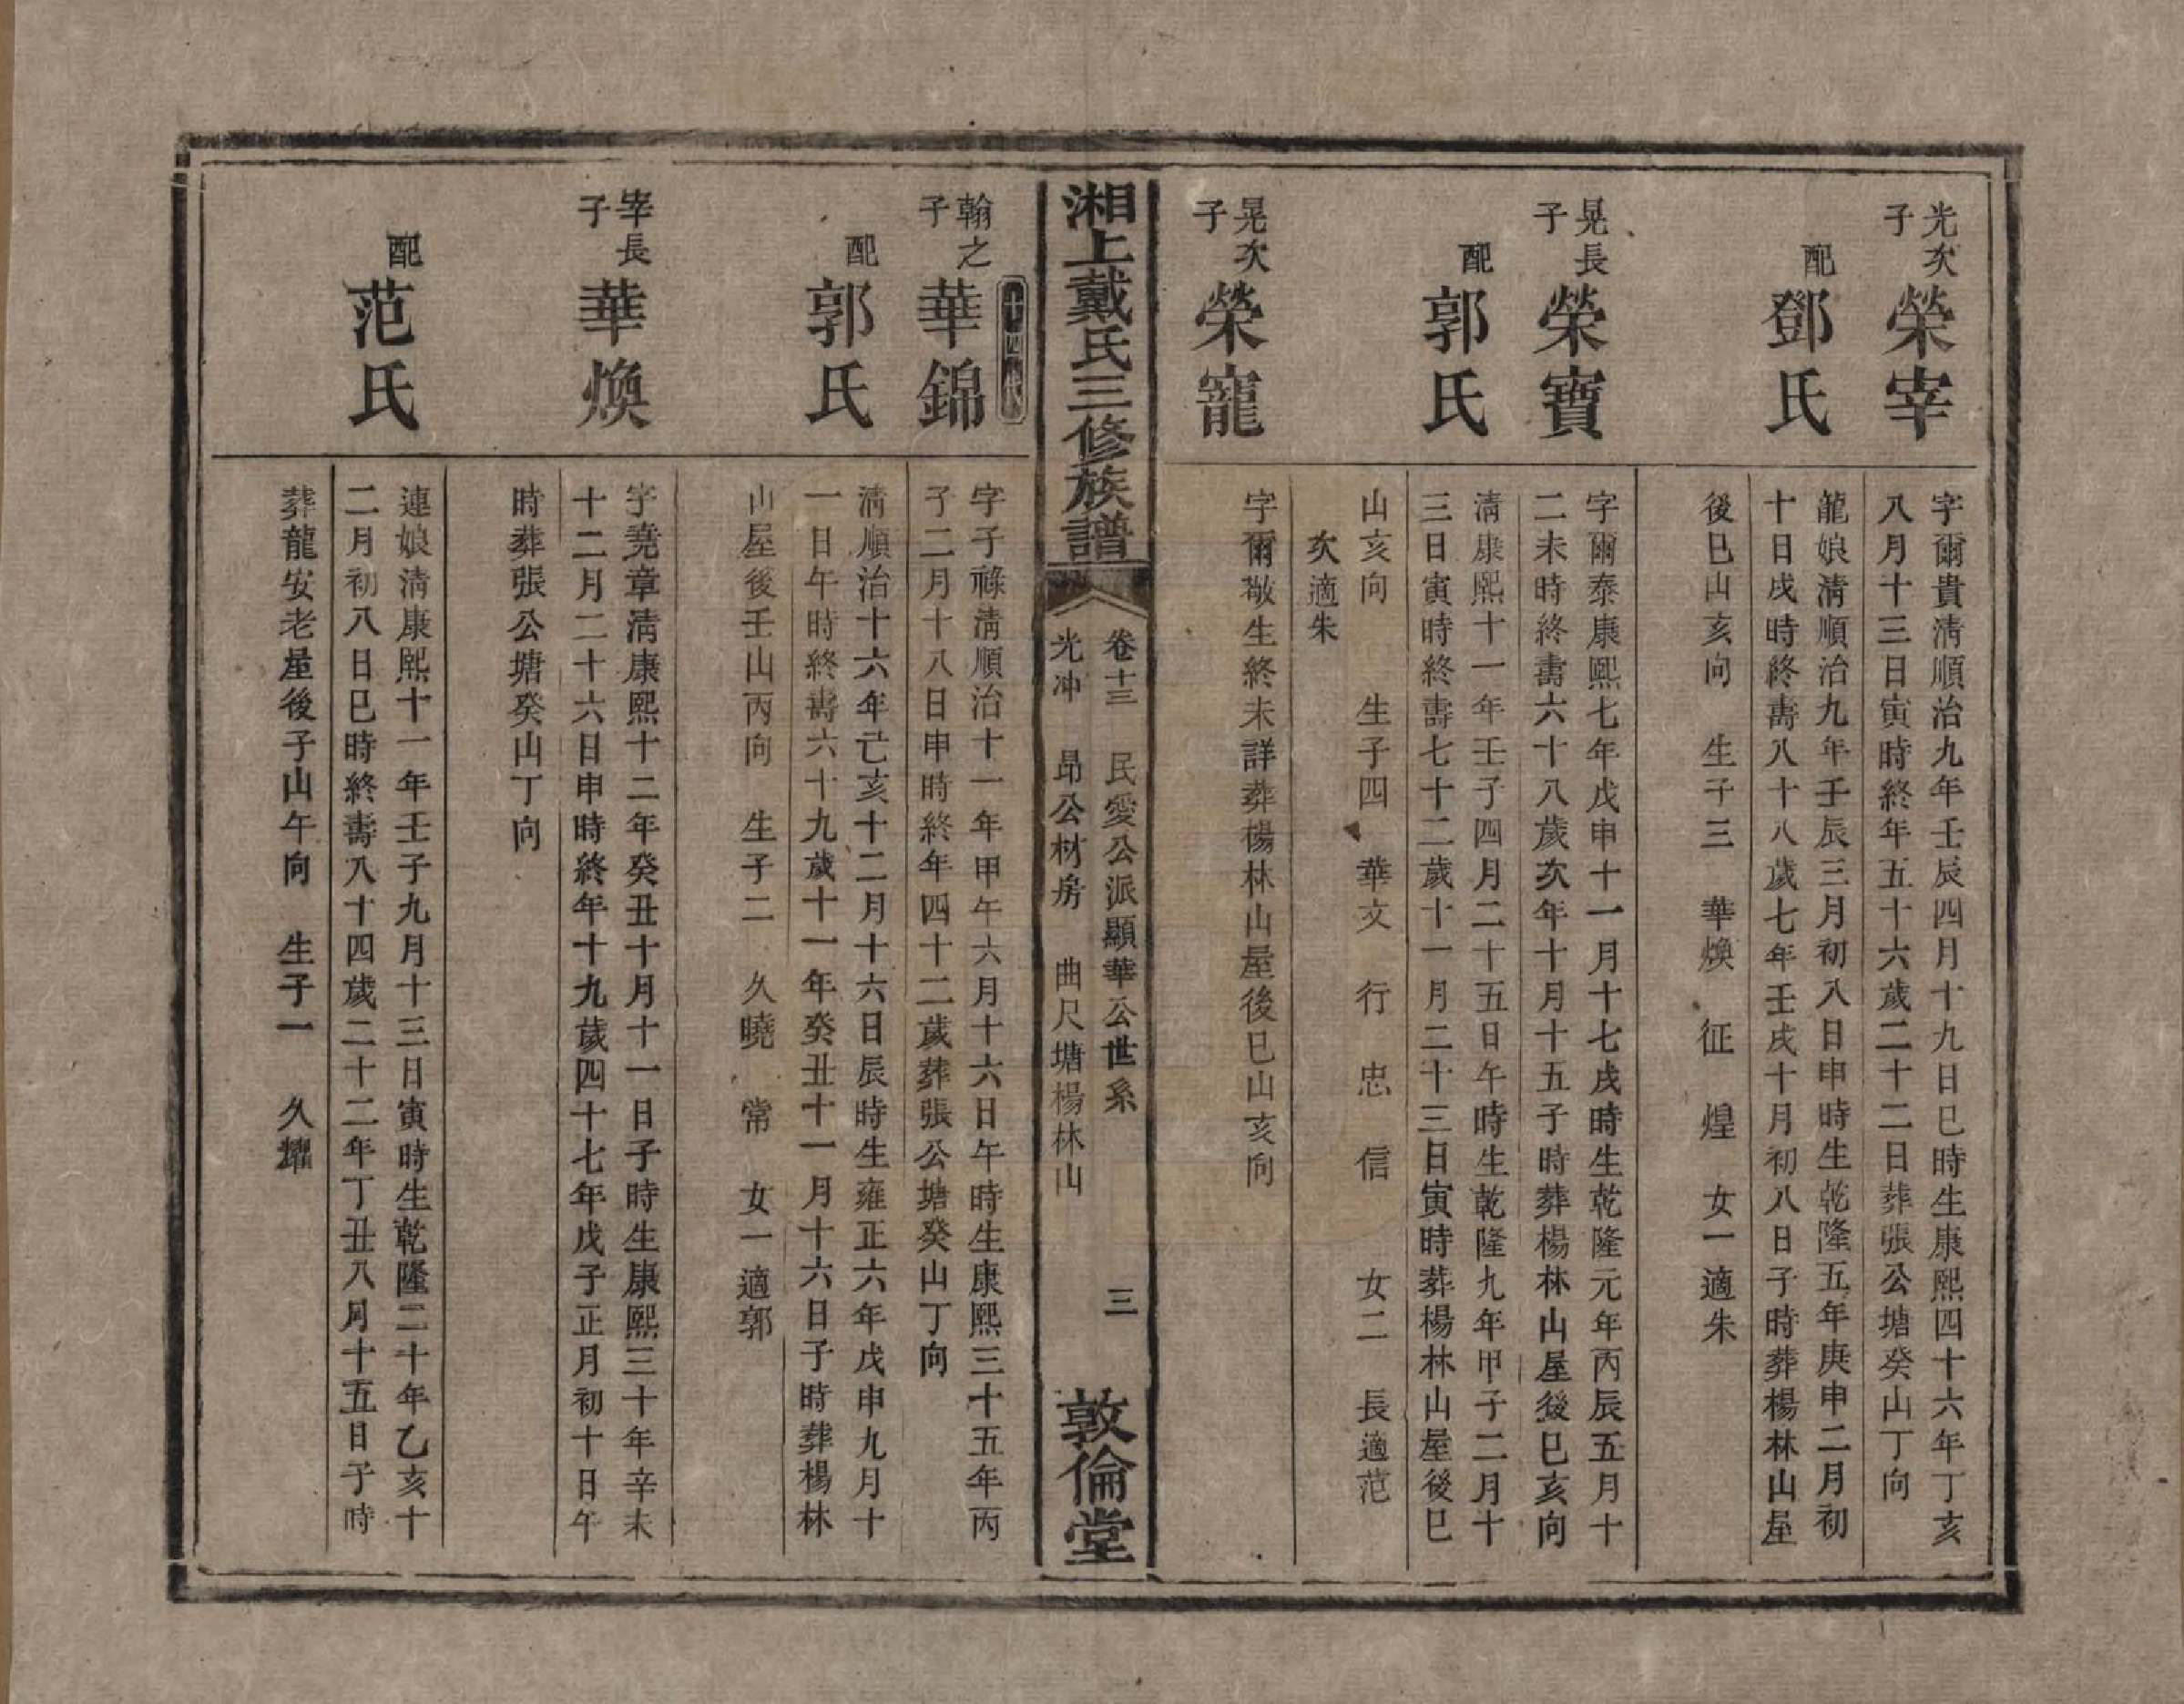 光次子
榮宰
字爾貴清順治九年壬辰四月十九日巳時生康熙四十六年丁亥
八月十三日寅時終年五十六歲二十二日葬張公塘癸山丁向
配
鄧氏
龍娘清順治九年壬辰三月初八日申時生乾隆五年庚申二月初
十日戌時終壽八十八歲七年壬戌十月初八日子時葬楊林山屋
後巳山亥向 生子三 華煥 征 煌 女一適朱
晃長子
榮寶
字爾泰康熙七年戊申十一月十七戌時生乾隆元年丙辰五月十
二未時終壽六十八歲次年十月十五子時葬楊林山屋後巳亥向
配
郭氏
清康熙十一年壬子四月二十五日午時生乾隆九年甲子二月十
三日寅時終壽七十二歲十一月二十三日寅時葬楊林山屋後巳
山亥向 生子四 華文 行 忠 信 女二 長適范
次適朱
晃次子
榮寵
字爾敬生終未詳葬楊林山屋後巳山亥向
湘上戴氏三修族譜
卷十三 民愛公派顯華公世系 三
光冲 昂公材房 曲尺塘楊林山
敦倫堂
十四代
翰之子
華錦
字子祿清順治十一年甲午六月十六日午時生康熙三十五年丙
子二月十八日申時終年四十二歲葬張公塘癸山丁向
配
郭氏
清順治十六年己亥十二月十六日辰時生雍正六年戊申九月十
一日午時終壽六十九歲十一年癸丑十一月十六日子時葬楊林
山屋後壬山丙向 生子二 久曉 常 女一適郭
宰長子
華煥
字堯章清康熙十二年癸丑十月十一日子時生康熙三十年辛未
十二月二十六日申時終年十九歲四十七年戊子正月初十日午
時葬張公塘癸山丁向
配
范氏
連娘清康熙十一年壬子九月十三日寅時生乾隆二十年乙亥十
二月初八日巳時終壽八十四歲二十二年丁丑八月十五日子時
葬龍安老屋後子山午向 生子一 久耀